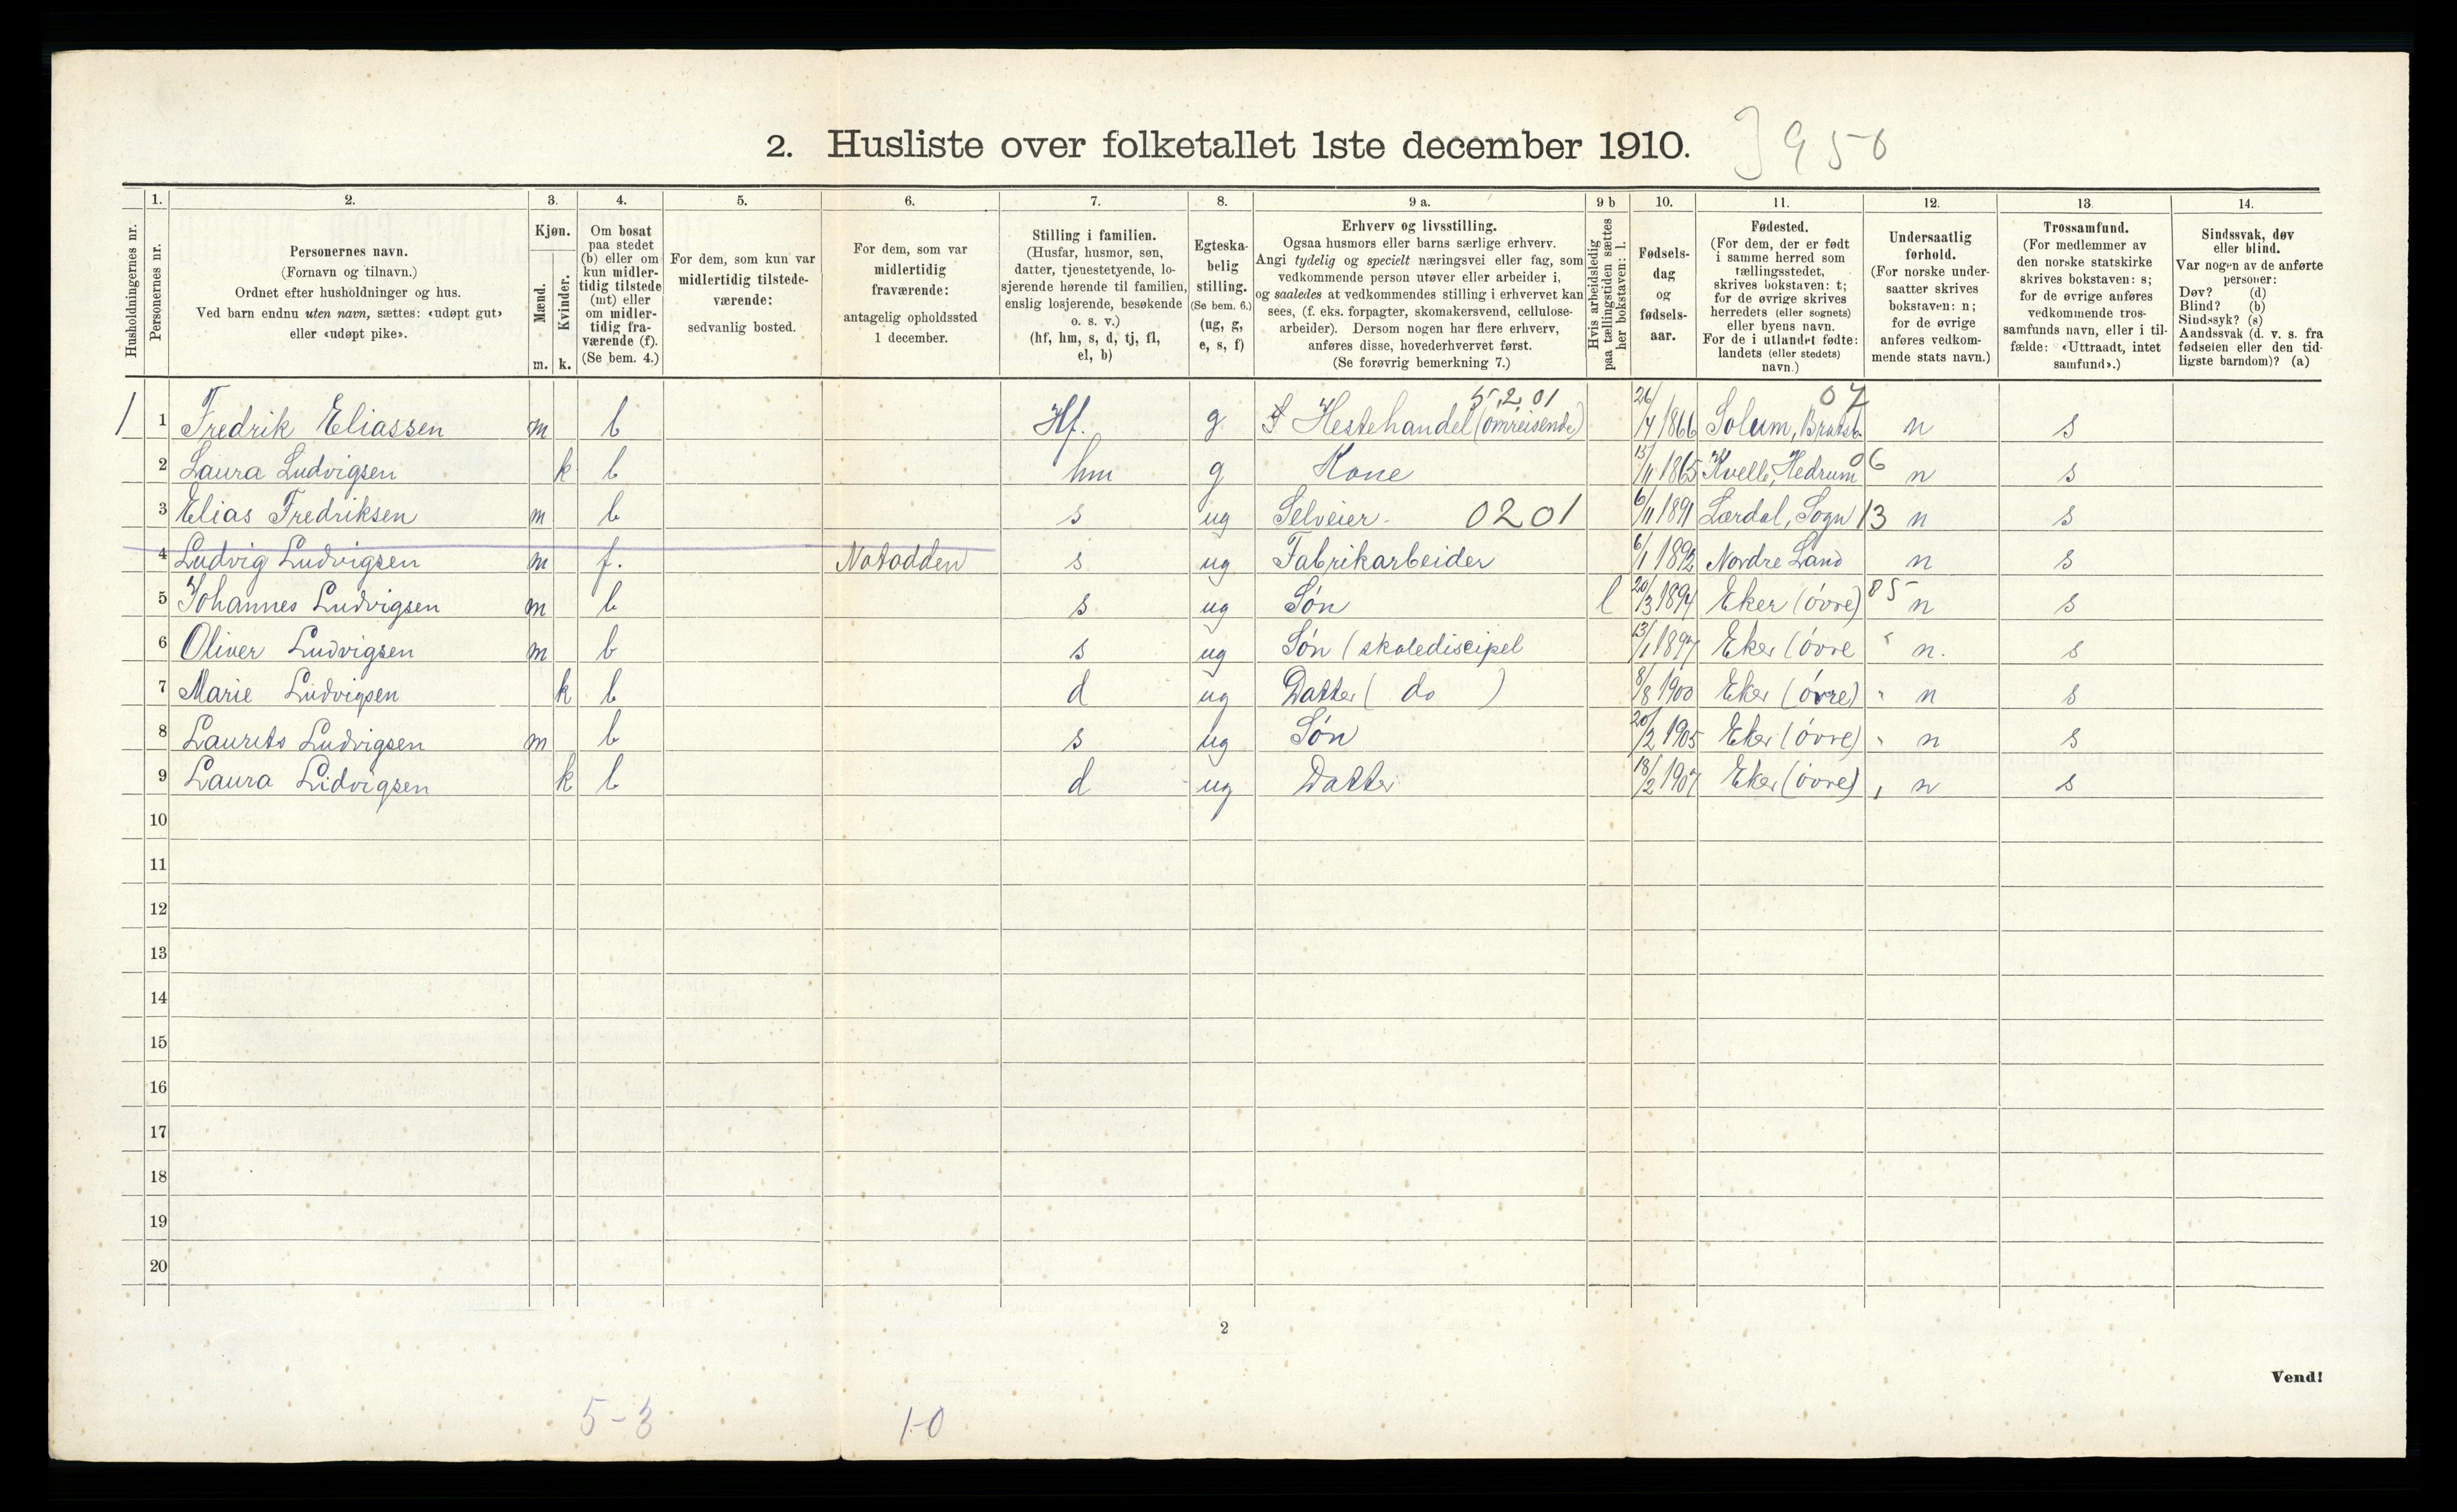 2. Husliste over folketallet 1ste december 1910.
1. 2. 3. 4. 5. 6. 7. 8. 9 a. 9 b 10. 11. 12. 13. 14.
Husholdningernes nr.
Personernes nr.
Personernes navn.
(Fornavn og tilnavn.)
Ordnet efter husholdninger og hus.
Ved barn endnu uten navn, sættes: «udøpt gut»
eller «udøpt pike».
Kjøn.
Mænd.
Kvinder.
m. k.
Om bosat
paa stedet
(b) eller om
kun midler-
tidig tilstede
(mt) eller
om midler-
tidig fra-
værende (f).
(Se bem. 4.)
For dem, som kun var
midlertidig tilstede-
værende:
sedvanlig bosted.
For dem, som var
midlertidig
fraværende:
antagelig opholdssted
1 december.
Stilling i familien.
(Husfar, husmor, søn,
datter, tjenestetyende, lo-
sjerende hørende til familien,
enslig losjerende, besøkende
o. s. v.)
(hf, hm, s, d, tj, fl,
el, b)
Egteska-
belig
stilling.
(Se bem. 6.)
(ug, g,
e, s, f)
Erhverv og livsstilling.
Ogsaa husmors eller barns særlige erhverv.
Angi tydelig og specielt næringsvei eller fag, som
vedkommende person utøver eller arbeider i,
og saaledes at vedkommendes stilling i erhvervet kan
sees, (f. eks. forpagter, skomakersvend, cellulose-
arbeider). Dersom nogen har flere erhverv,
anføres disse, hovederhvervet først.
(Se forøvrig bemerkning 7.)
Hvis arbeidsledig
paa tællingstiden sættes
her bokstaven: l.
Fødsels-
dag
og
fødsels-
aar.
Fødested.
(For dem, der er født
i samme herred som
tællingsstedet,
skrives bokstaven: t;
for de øvrige skrives
herredets (eller sognets)
eller byens navn.
For de i utlandet fødte:
landets (eller stedets)
navn.)
Undersaatlig
forhold.
(For norske under-
saatter skrives
bokstaven: n;
for de øvrige
anføres vedkom-
mende stats navn.)
Trossamfund.
(For medlemmer av
den norske statskirke
skrives bokstaven: s;
for de øvrige anføres
vedkommende tros-
samfunds navn, eller i til-
fælde: «Uttraadt, intet
samfund».)
Sindssvak, døv
eller blind.
Var nogen av de anførte
personer:
Døv? (d)
Blind? (b)
Sindssyk? (s)
Aandssvak (d. v. s. fra
fødselen eller den tid-
ligste barndom)? (a)
5,2,01 07
1 1 Fredrik Eliassen m b Hf. g Hestehandel (omreisende) 26/7 1866 Solum, Bratsb. n s
2 Laura Ludvigsen k b hm g Kone 15/11 1865 Kvelle, Hedrum 06 n s
3 Elias Fredriksen m b s ug Selveier. 0201 6/11 1891 Lærdal, Sogn 13 n s
4 Ludvig Ludvigsen m f. Notodden s ug Fabrikarbeider 6/1 1892 Nordre Land n s
5 Johannes Ludvigsen m b s ug Søn l 20/3 1894 Eker (óvre) 85 n s
6 Oliver Ludvigsen m b s ug Søn (skolediscipel 13/1 1897 Eker (óvre " n. s
7 Marie Ludvigsen k b d ug Datter ( do ) 8/8 1900 Eker (óvre) " n s
8 Laurits Ludvigsen m b s ug Søn 20/2 1905 Eker (óvre) " n s
9 Laura Lidvigsen k b d ug Datter 18/2 1907 Eker (óvre) , n s
10
11
12
13
14
15
16
17
18
19
20
2
Vend!
5-3 1-0